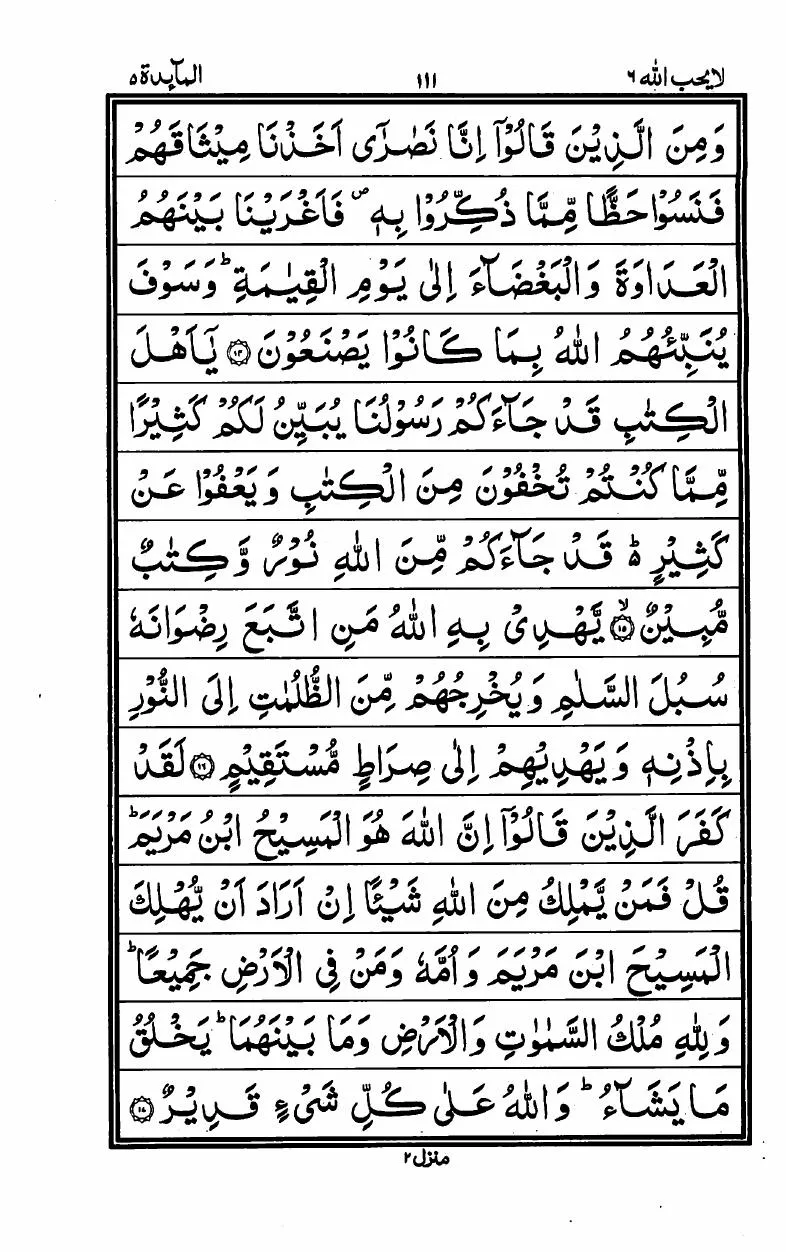 لا يحب الله ٦
١١١
المآئدة ٥
وَمِنَ الَّذِيْنَ قَالُوْۤا اِنَّا نَصٰرٰۤى اَخَذْنَا مِيْثَاقَهُمْ
فَنَسُوْا حَظًّا مِّمَّا ذُكِّرُوْا بِهٖ ۪ فَاَغْرَيْنَا بَيْنَهُمُ
الْعَدَاوَةَ وَالْبَغْضَآءَ اِلٰى يَوْمِ الْقِيٰمَةِ ؕ وَسَوْفَ
يُنَبِّئُهُمُ اللّٰهُ بِمَا كَانُوْا يَصْنَعُوْنَ ﴿۱۴﴾ يٰۤاَهْلَ
الْكِتٰبِ قَدْ جَآءَكُمْ رَسُوْلُنَا يُبَيِّنُ لَكُمْ كَثِيْرًا
مِّمَّا كُنْتُمْ تُخْفُوْنَ مِنَ الْكِتٰبِ وَيَعْفُوْا عَنْ
كَثِيْرٍ ؕ۬ قَدْ جَآءَكُمْ مِّنَ اللّٰهِ نُوْرٌ وَّكِتٰبٌ
مُّبِيْنٌ ﴿ۙ۱۵﴾ يَّهْدِىْ بِهِ اللّٰهُ مَنِ اتَّبَعَ رِضْوَانَهٗ
سُبُلَ السَّلٰمِ وَيُخْرِجُهُمْ مِّنَ الظُّلُمٰتِ اِلَى النُّوْرِ
بِاِذْنِهٖ وَيَهْدِيْهِمْ اِلٰى صِرَاطٍ مُّسْتَقِيْمٍ ﴿۱۶﴾ لَقَدْ
كَفَرَ الَّذِيْنَ قَالُوْۤا اِنَّ اللّٰهَ هُوَ الْمَسِيْحُ ابْنُ مَرْيَمَ ؕ
قُلْ فَمَنْ يَّمْلِكُ مِنَ اللّٰهِ شَيْئًا اِنْ اَرَادَ اَنْ يُّهْلِكَ
الْمَسِيْحَ ابْنَ مَرْيَمَ وَاُمَّهٗ وَمَنْ فِى الْاَرْضِ جَمِيْعًا ؕ
وَلِلّٰهِ مُلْكُ السَّمٰوٰتِ وَالْاَرْضِ وَمَا بَيْنَهُمَا ؕ يَخْلُقُ
مَا يَشَآءُ ؕ وَاللّٰهُ عَلٰى كُلِّ شَىْءٍ قَدِيْرٌ ﴿۱۷﴾
منزل ٢